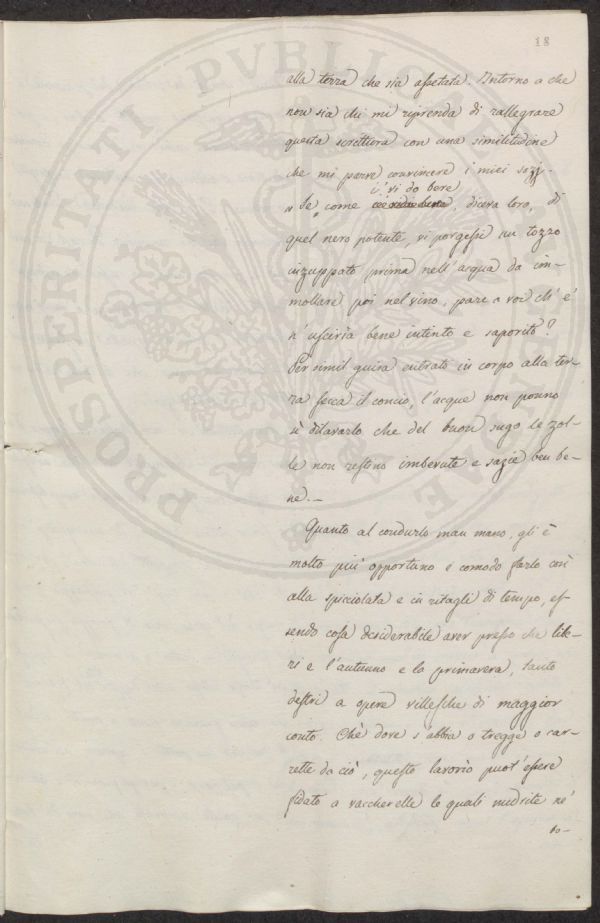 18
alla terra che sia assetata. Intorno a che
non sia chi mi riprenda di rallegrare
questa scrittura con una similitudine
che mi parve convincere i miei sozj.
i' vi do bere
„ Se come, diceva loro, di
quel nero potente, vi porgessi un tozzo
inzuppato prima nell'acqua da im-
mollare poi nel vino, pare a voi ch'e'
n'usciria bene intinto e saporito?
Per simil guisa entrato in corpo alla ter-
ra secca il concio, l'acque non ponno
sì dilavarlo che del buon sugo le zol-
le non restino imbevute e sazie ben be-
ne. –
Quanto al condurlo man mano, gli è
molto più opportuno e comodo farlo così
alla spicciolata e in ritagli di tempo, es-
sendo cosa desiderabile aver presso che libe-
ri e l'autunno e la primavera, tanto
destri a opere villesche di maggior
conto. Chè dove s'abbia o tregge o car-
rette da ciò, questo lavorìo puot'essere
fidato a vaccherelle le quali nudrite ne'
bo-
PROSPERITATI PVBLICAE